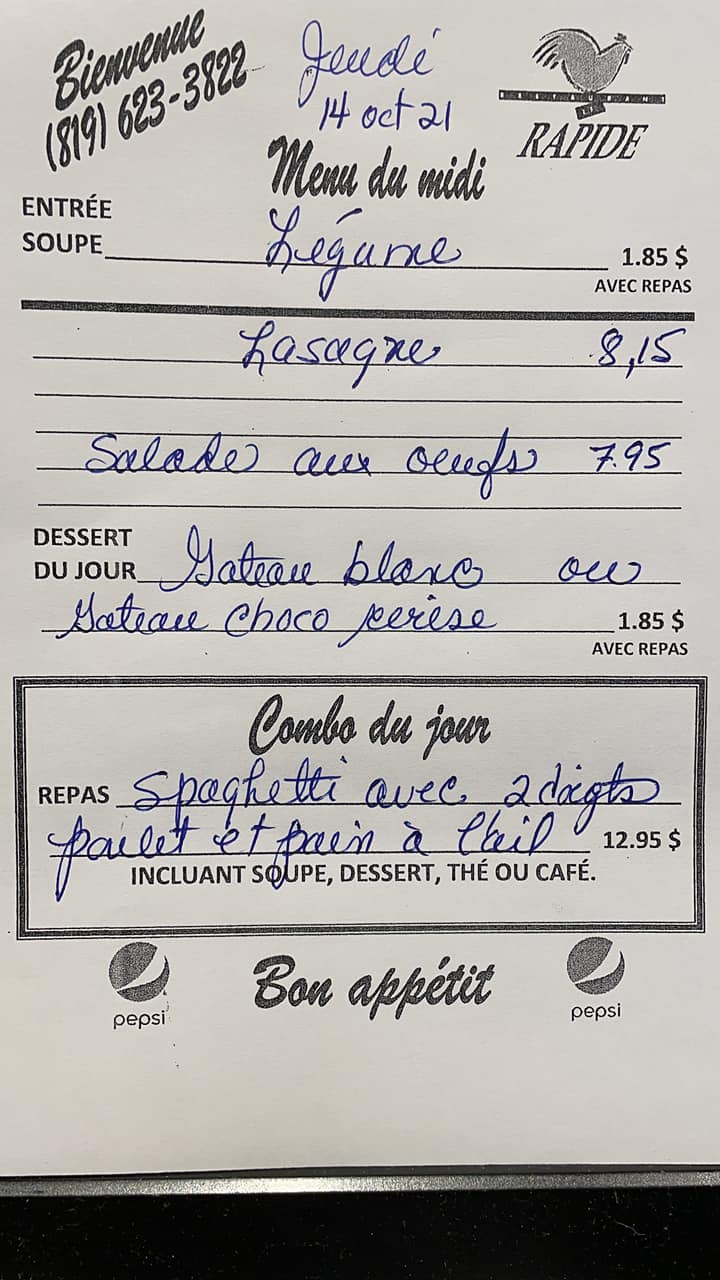 Bienvenue
(819) 623-3822
Jeudi
14 oct 21
RAPIDE
Menu du midi
ENTRÉE
SOUPE Légume 1.85 $
AVEC REPAS
Lasagne 8,15
Salade aux oeufs 7.95
DESSERT
DU JOUR Gateau blanc ou
Gateau choco cerise 1.85 $
AVEC REPAS
Combo du jour
REPAS Spaghetti avec 2 doigts
poulet et pain à l'ail 12.95 $
INCLUANT SOUPE, DESSERT, THÉ OU CAFÉ.
Bon appétit
pepsi pepsi